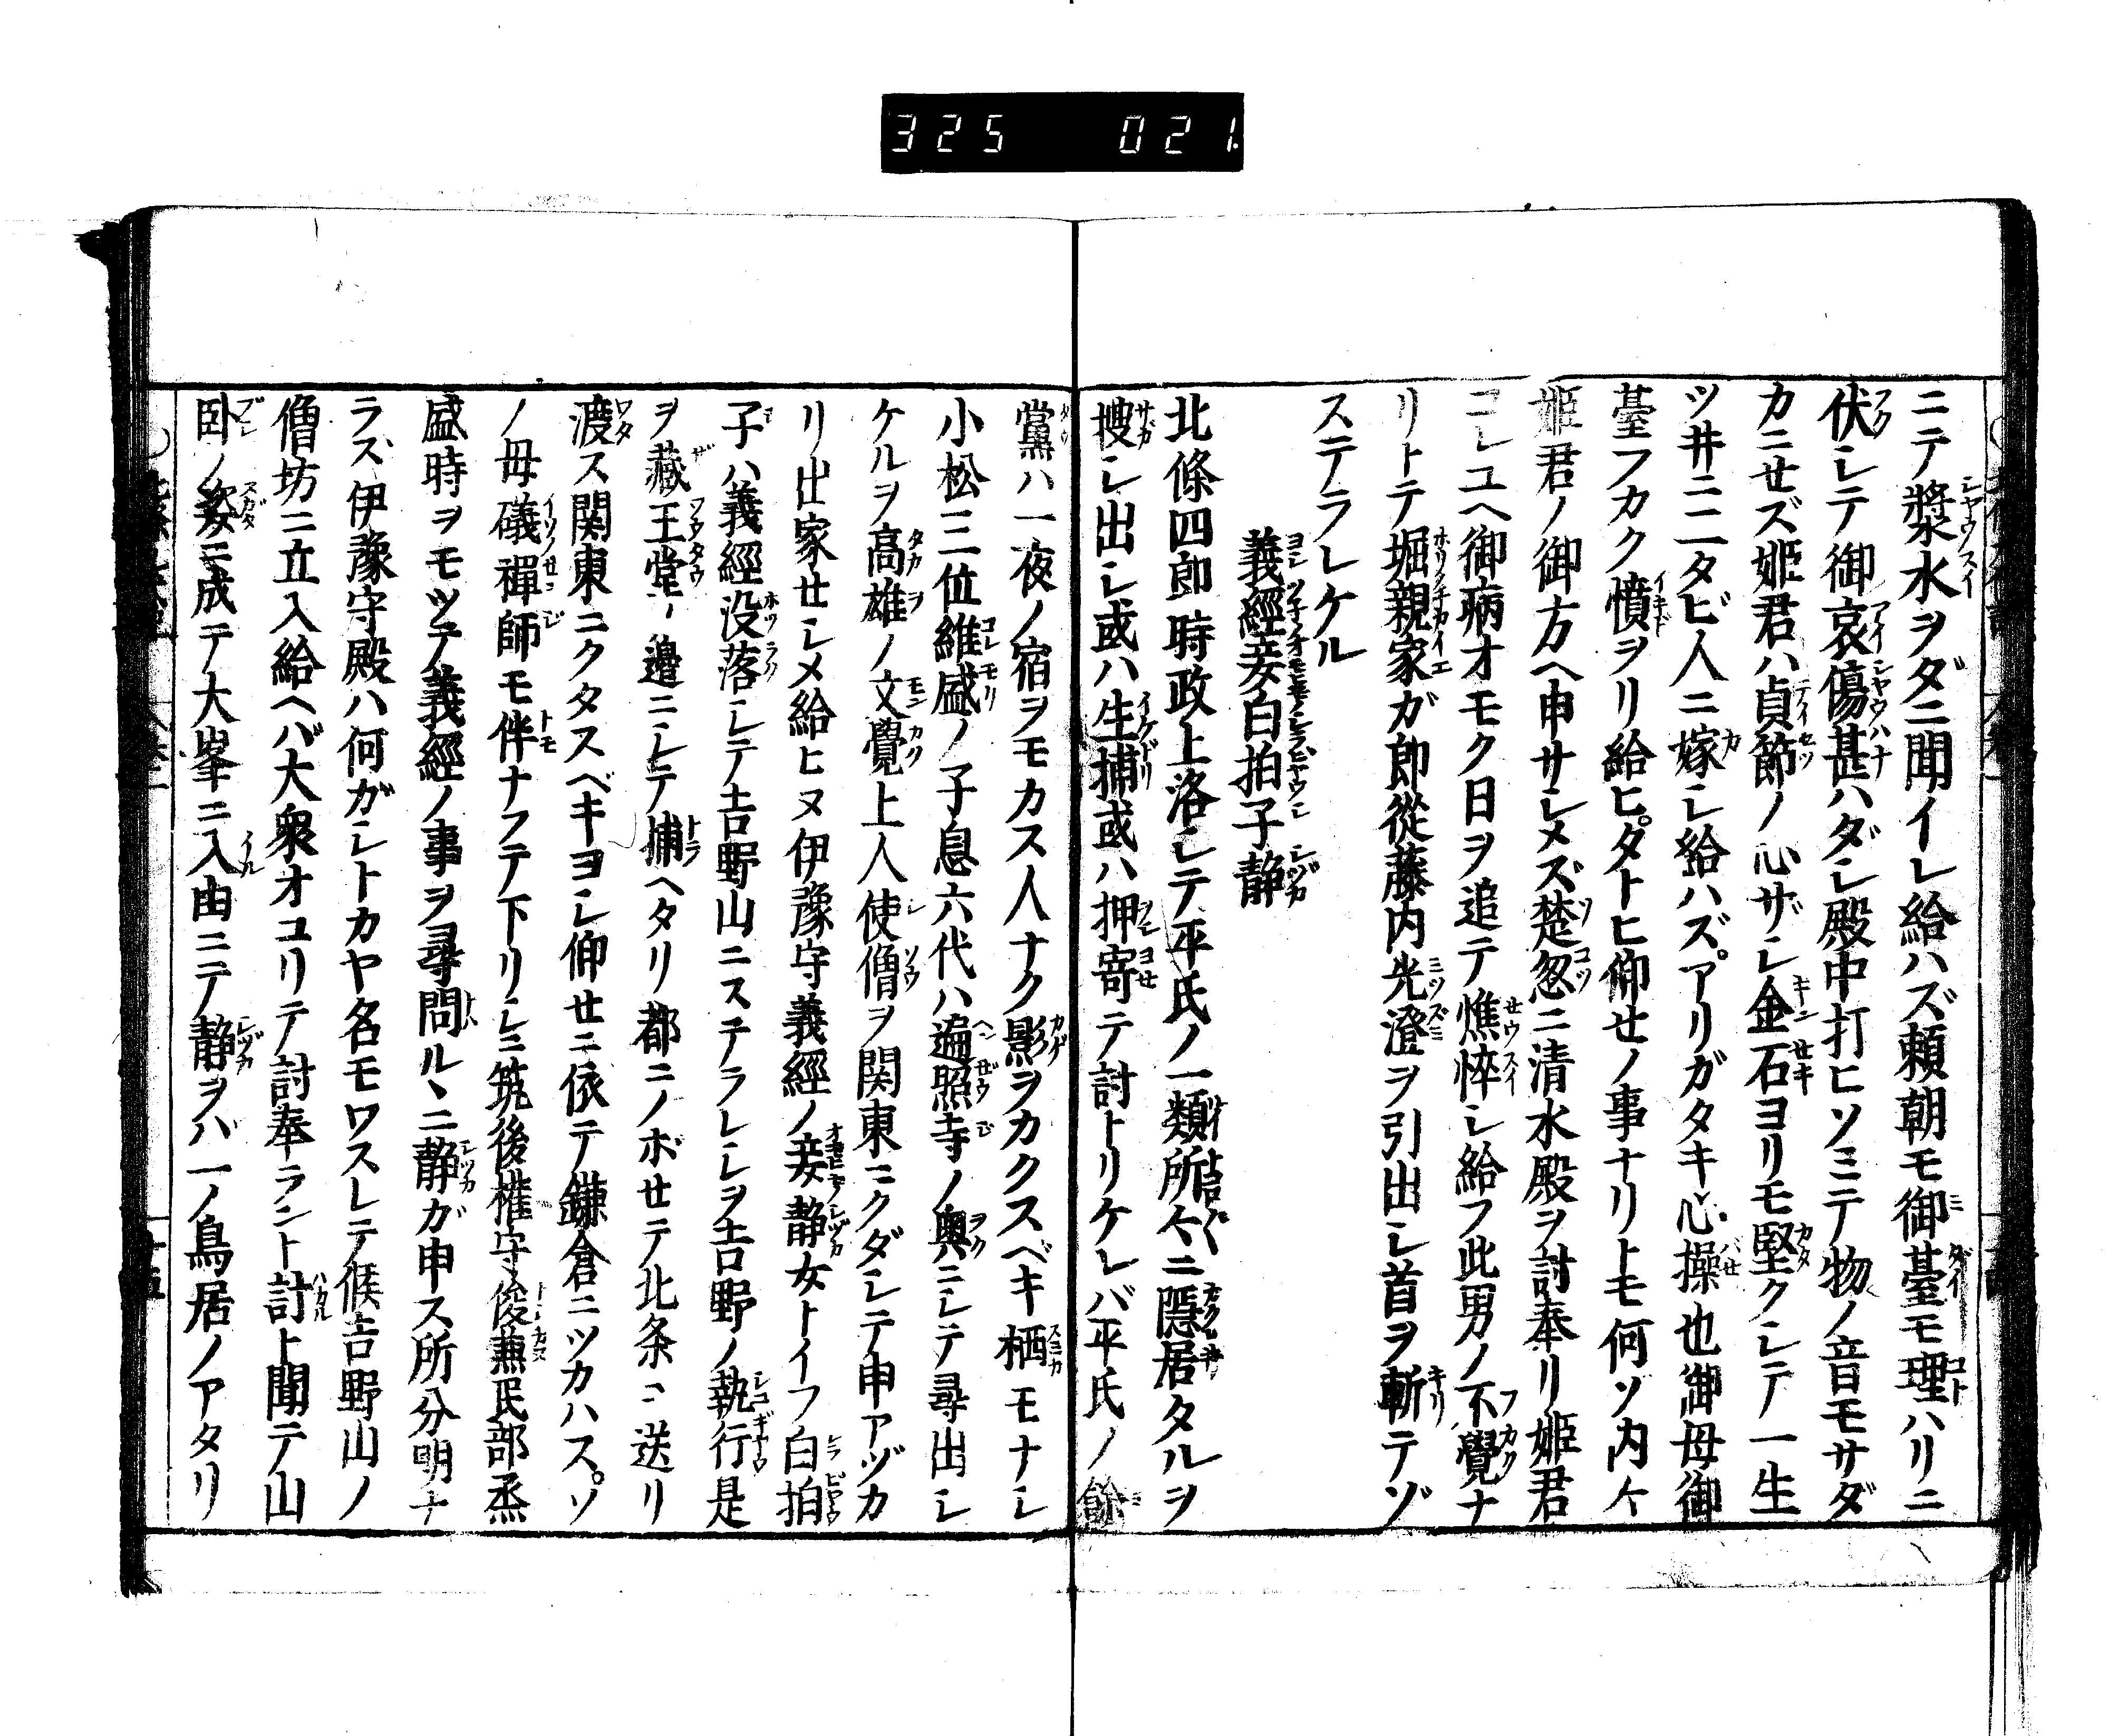 325 021.
ニテ漿水ヲダニ聞イレ給ハズ頼朝モ御臺モ理ハリニ
伏レテ御哀傷甚ハダシ殿中打ヒソミテ物ノ音モサダ
カニせズ姫君ハ貞節ノ心ザシ金石ヨリモ堅クシテ一生
ツ井ニ二タビ人ニ嫁シ給ハズアリガタキ心操也御母御
臺フカク憤ヲリ給ヒタトヒ仰せノ事ナリトモ何ソ内々
姫君ノ御方ヘ申サシメズ楚忽ニ清水殿ヲ討奉リ姫君
コレユヘ御病オモク日ヲ追テ憔悴シ給フ此男ノ不覺ナ
リトテ堀親家ガ郎從藤内光澄ヲ引出シ首ヲ斬テゾ
ステラレケル
義經妾白拍子静
北條四郎時政上洛シテ平氏ノ一類所々ニ隠居タルヲ
搜シ出シ或ハ生捕或ハ押寄テ討トリケレバ平氏ノ餘
黨ハ一夜ノ宿ヲモカス人ナク影ヲカクスベキ栖モナシ
小松三位維盛ノ子息六代ハ遍照寺ノ奥ニシテ尋出シ
ケルヲ高雄ノ文覺上人使僧ヲ関東ニクダシテ申アヅカ
リ出家せシメ給ヒヌ伊豫守義經ノ妾静女トイフ白拍
子ハ義經没落シテ吉野山ニステラレシヲ吉野ノ執行是
ヲ藏王堂ノ邉ニシテ捕ヘタリ都ニノボせテ北条ニ送リ
渡ス関東ニクタスベキヨシ仰せニ依テ鎌倉ニツカハスソ
ノ母礒禪師モ伴ナフテ下リシニ筑後權守俊兼民部丞
盛時ヲモツテ義經ノ事ヲ尋問ルヽニ静ガ申ス所分明ナ
ラズ伊豫守殿ハ何ガシトカヤ名モワスレテ候吉野山ノ
僧坊ニ立入給ヘバ大衆オコリテ討奉ラント討ト聞テ山
卧ノ姿ニ成テ大峯ニ入由ニテ静ヲハ一ノ鳥居ノアタリ